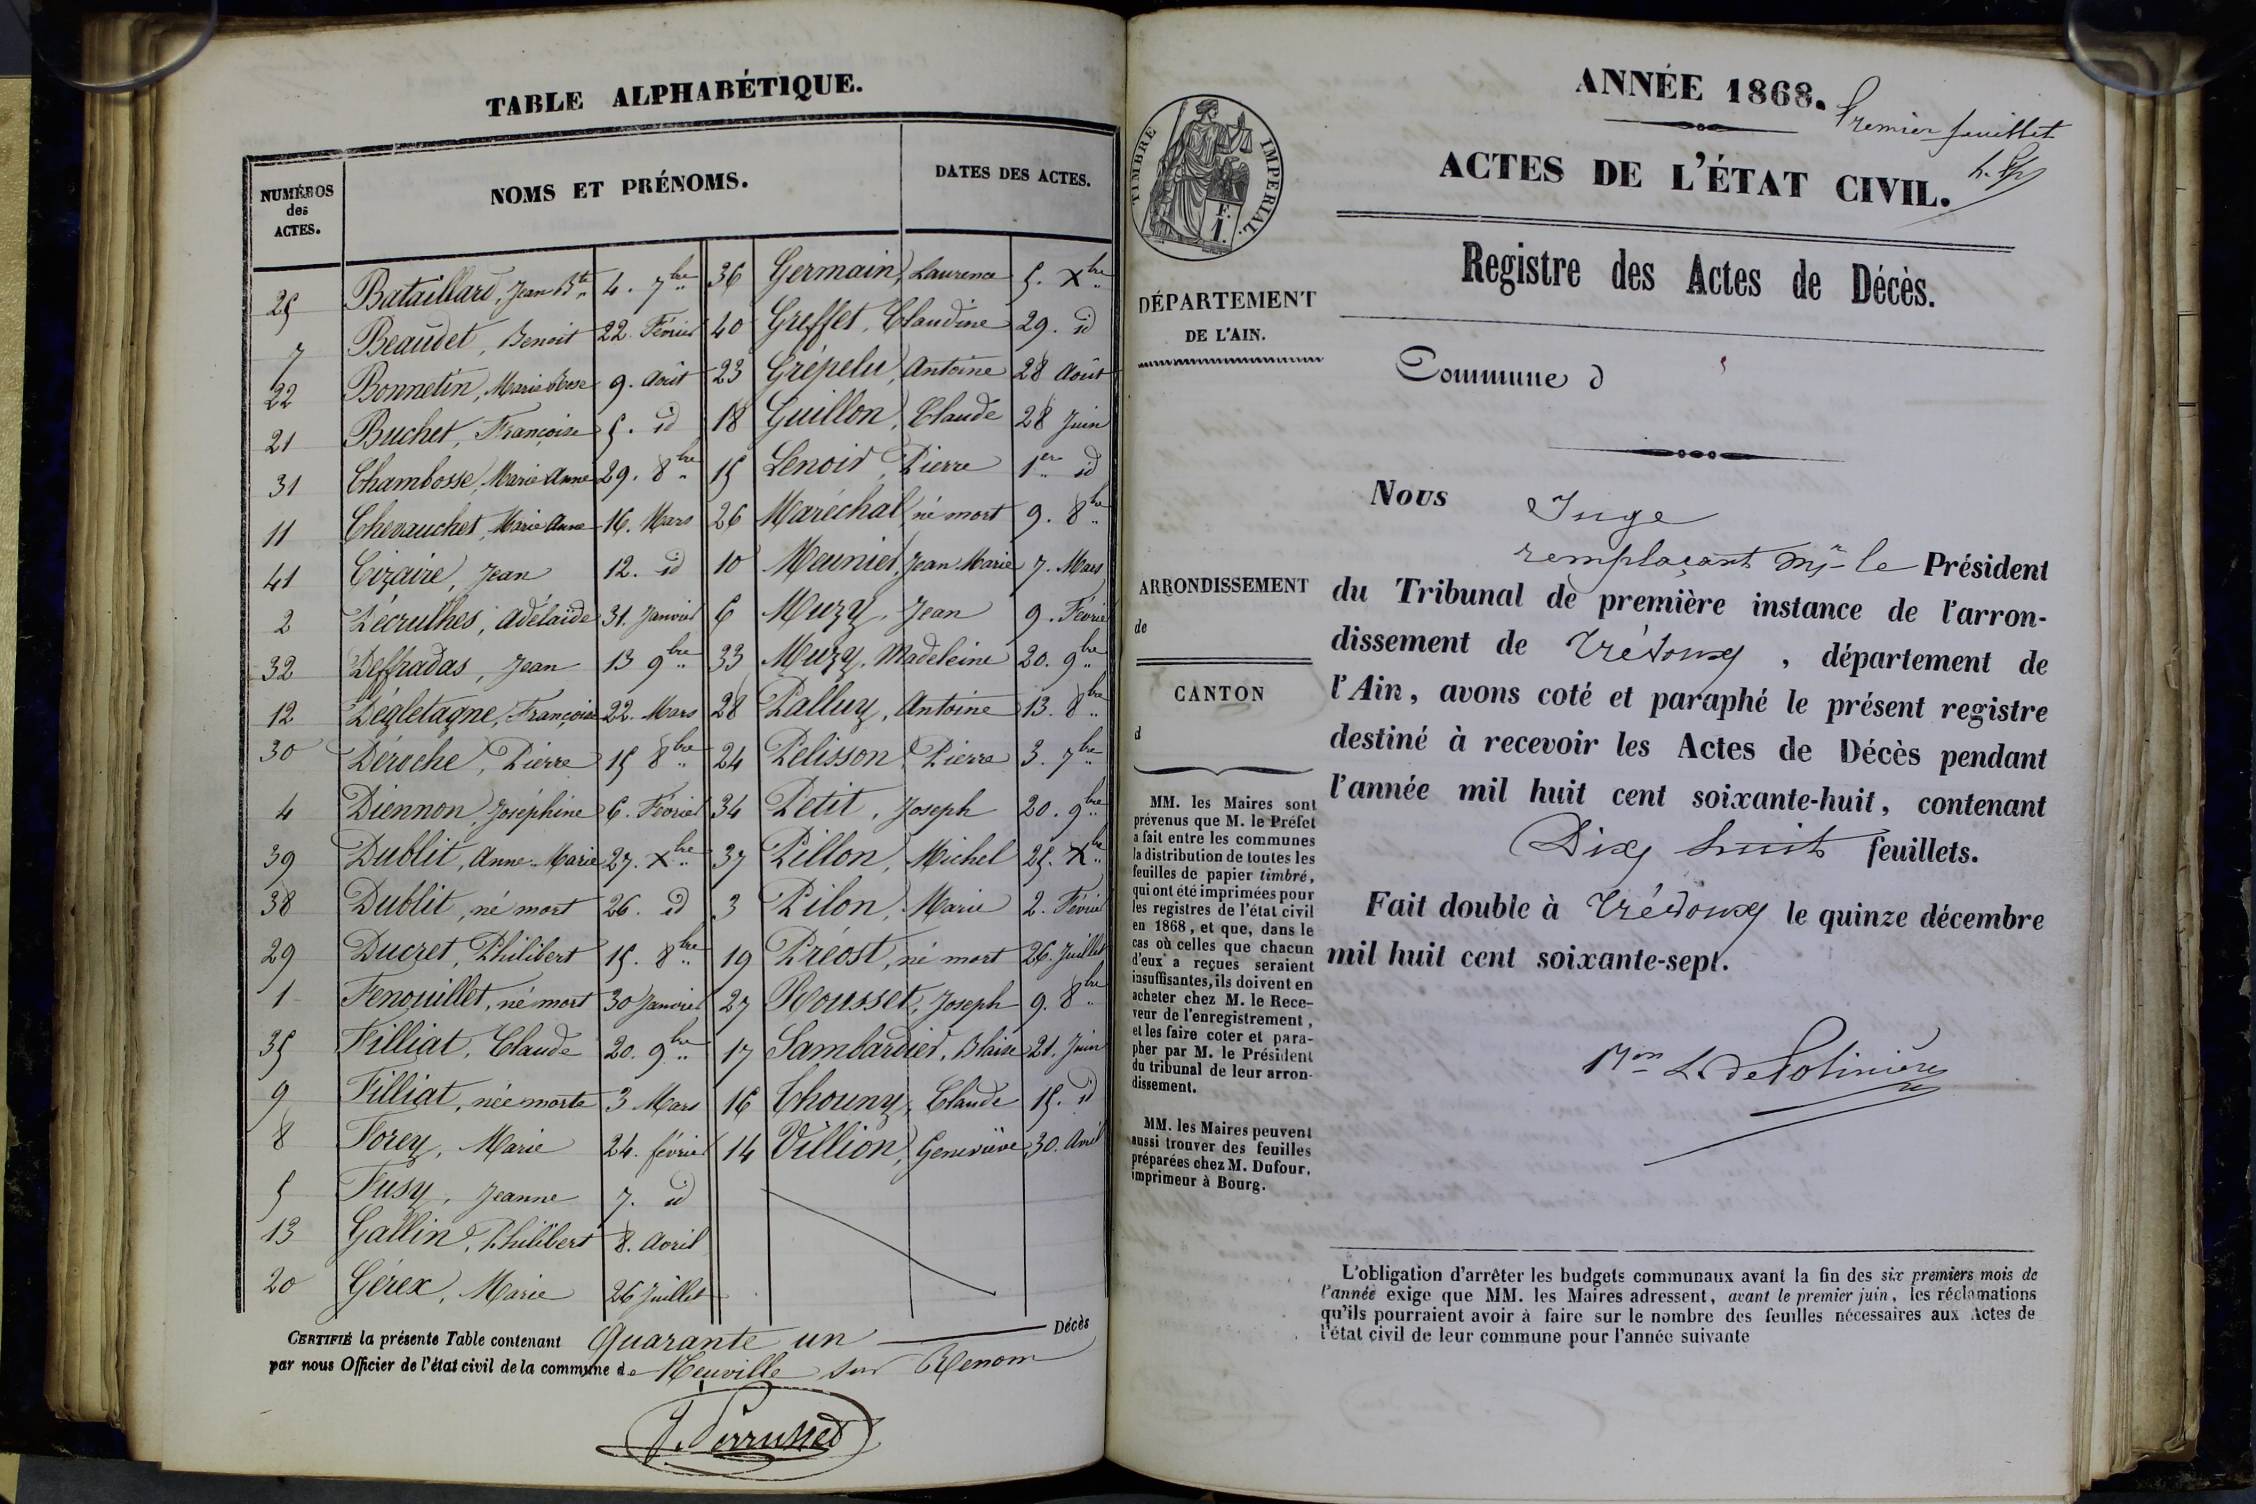 TABLE ALPHABÉTIQUE.
NUMÉROS
des
ACTES.
NOMS ET PRÉNOMS.
DATES DES ACTES.
25 Bataillard, Jean Bte 4. 7bre
7 Beaudet, Benoit 22. Février
22 Bonnetin, Marie Rose 9. Août
21 Buchet, Françoise 5. id
31 Chambosse, Marie Anne 29. 8bre
11 Chevauchet, Marie Anne 16. Mars
41 Cizaire, Jean 12. id
2 Décrulhes, Adélaïde 31. Janvier
32 Deffradas, Jean 13 9bre
12 Dégletagne, Françoise 22. Mars
30 Déroche, Pierre 15 8bre
4 Diennon, Joséphine 6. Février
39 Dublit, Anne-Marie 27. Xbre
38 Dublit, né mort 26. id
29 Ducret, Philibert 15. 8bre
1 Fenouillet, né mort 30 Janvier
35 Filliat, Claude 20. 9bre
9 Filliat, née morte 3 Mars
8 Forey, Marie 24. février
5 Fusy, Jeanne 7. id
13 Gallin, Philibert 8. Avril
20 Gérex, Marie 26 Juillet
36 Germain, Laurence 5. Xbre
40 Greffet, Claudine 29. id
23 Grépelu, Antoine 28 Août
18 Guillon, Claude 28 Juin
15 Lenoir, Pierre 1er id
26 Maréchal, né mort 9. 8bre
10 Meunier, Jean Marie 7. Mars
6 Muzy, Jean 9. Février
33 Muzy, Madeleine 20. 9bre
28 Palluy, Antoine 13. 8bre
24 Pelisson, Pierre 3. 7bre
34 Petit, Joseph 20. 9bre
37 Pillon, Michel 25. Xbre
3 Pilon, Marie 2. Février
19 Préost, né mort 26. Juillet
27 Rousset, Joseph 9. 8bre
17 Sambardier, Blaise 21. Juin
16 Chouny, Claude 15. id
14 Villion, Geneviève 30. Avril
CERTIFIÉ la présente Table contenant Quarante un Décès
par nous Officier de l'état civil de la commune de Neuville sur Renom
J. Perrussed
ANNÉE 1868.
Premier feuillet
ACTES DE L'ÉTAT CIVIL.
TIMBRE IMPERIAL.
F.
1.
Registre des Actes de Décès.
DÉPARTEMENT
DE L'AIN.
Commune d
ARRONDISSEMENT
de
CANTON
d
MM. les Maires sont
prévenus que M. le Préfet
a fait entre les communes
la distribution de toutes les
feuilles de papier timbré,
qui ont été imprimées pour
les registres de l'état civil
en 1868, et que, dans le
cas où celles que chacun
d'eux a reçues seraient
insuffisantes, ils doivent en
acheter chez M. le Rece-
veur de l'enregistrement,
et les faire coter et para-
pher par M. le Président
du tribunal de leur arron-
dissement.
MM. les Maires peuvent
aussi trouver des feuilles
préparées chez M. Dufour,
imprimeur à Bourg.
Nous Juge
remplaçant Mr le Président
du Tribunal de première instance de l'arron-
dissement de Trévoux, département de
l'Ain, avons coté et paraphé le présent registre
destiné à recevoir les Actes de Décès pendant
l'année mil huit cent soixante-huit, contenant
Dix huit feuillets.
Fait double à Trévoux le quinze décembre
mil huit cent soixante-sept.
L'obligation d'arrêter les budgets communaux avant la fin des six premiers mois de
l'année exige que MM. les Maires adressent, avant le premier juin, les réclamations
qu'ils pourraient avoir à faire sur le nombre des feuilles nécessaires aux Actes de
l'état civil de leur commune pour l'année suivante